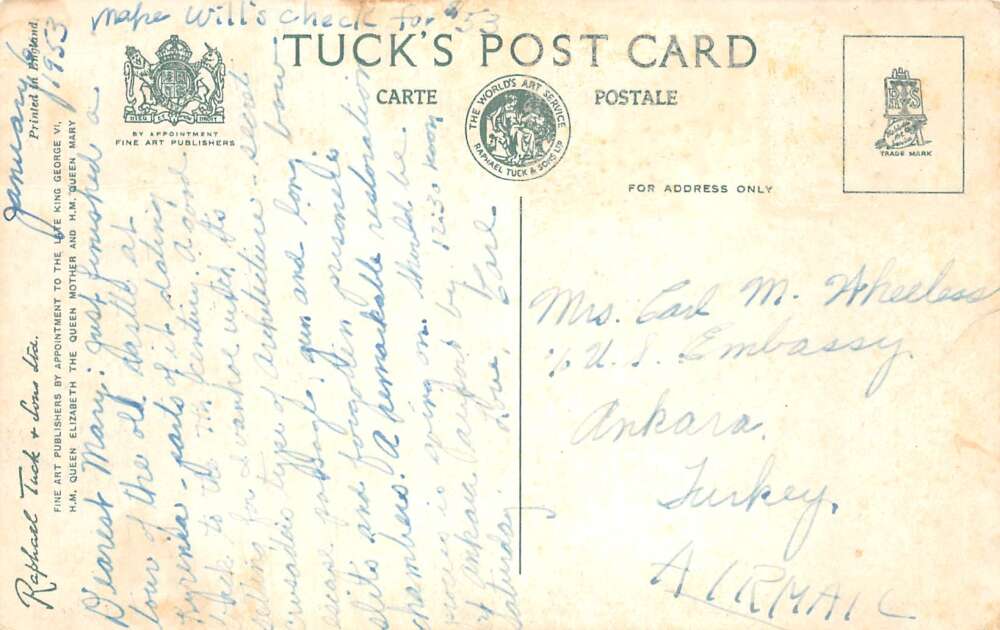 Make Will's check for $53
TUCK'S POST CARD
CARTE POSTALE
DIEU ET MON DROIT
BY APPOINTMENT
FINE ART PUBLISHERS
THE WORLD'S ART SERVICE
RAPHAEL TUCK & SONS LTD
TRADE MARK
FOR ADDRESS ONLY
Raphael Tuck & Sons Ltd.
Printed in England.
FINE ART PUBLISHERS BY APPOINTMENT TO THE LATE KING GEORGE VI,
H.M. QUEEN ELIZABETH THE QUEEN MOTHER AND H.M. QUEEN MARY
January
1953
Dearest Mary: Just finished a
tour of the old castle at
Kyrenia - parts of it dating
back to the 7th century. A good
setting for Ivanhoe with its
crusaders type of architecture - secret
escape passage, gun and long bow
slits and forgotten prisoners
chambers. A remarkable restoration
process is going on. Should be
at Ankara airport by 12:30 noon
Saturday. Love, Carl
Mrs. Carl M. Wheeless
% U.S. Embassy.
Ankara.
Turkey.
AIRMAIL